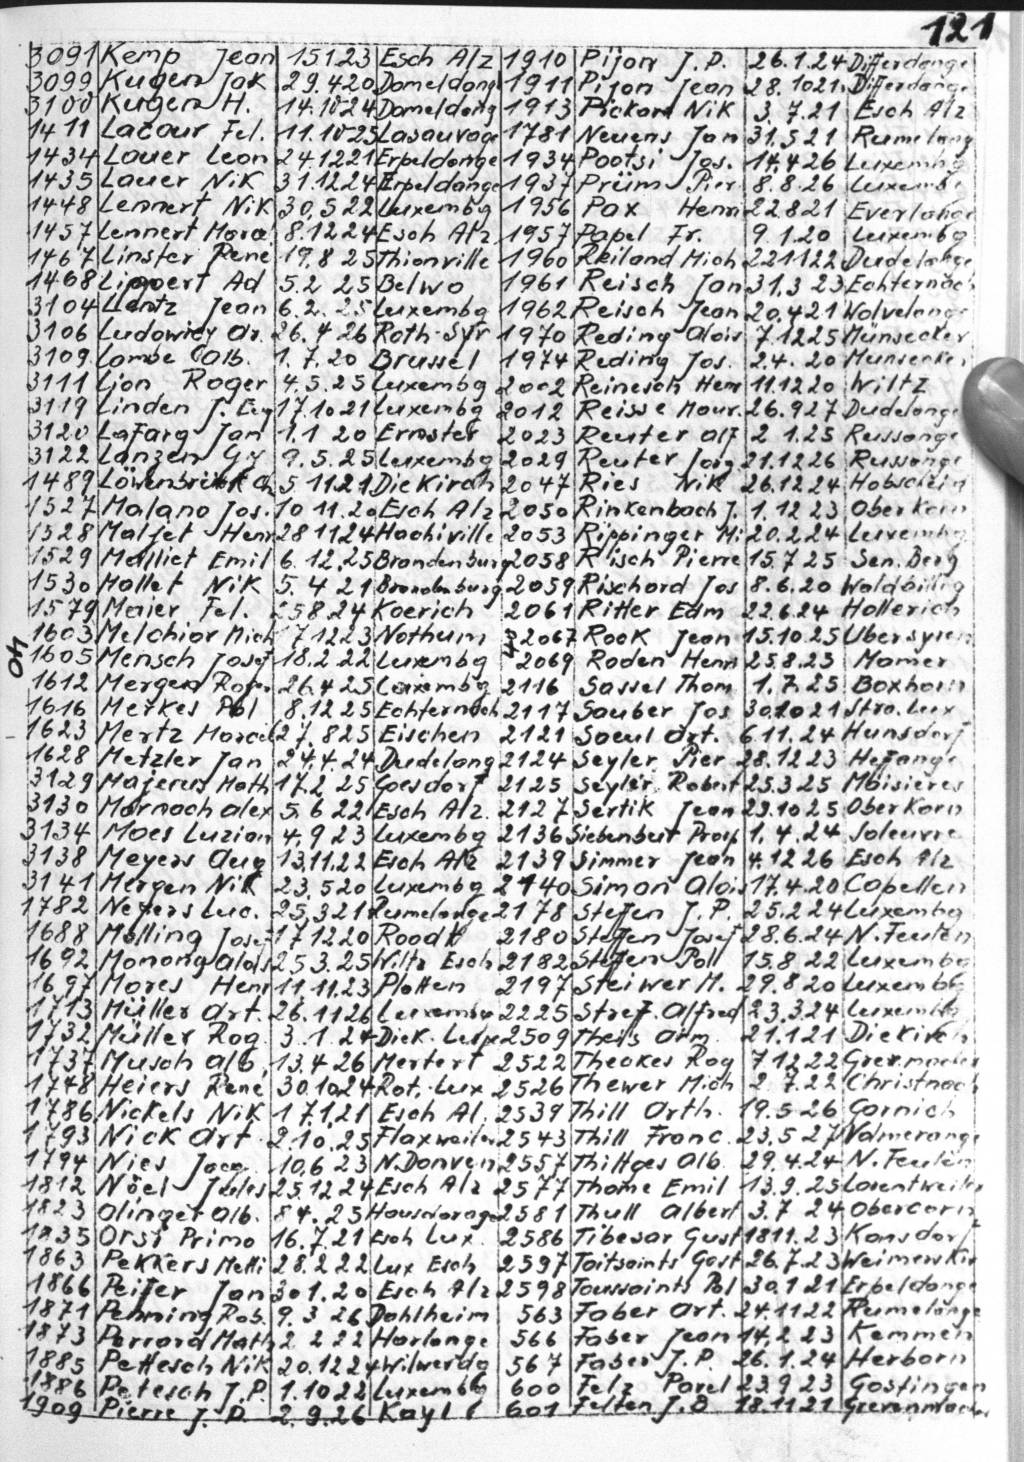 121
3091 Kemp Jean 15.1.23 Esch Alz 1910 Pijon J.P. 26.1.24 Differdange
3099 Kugen Jak 29.4.20 Domeldang 1911 Pijon Jean 28.10.21 Differdange
3100 Kugen H. 14.10.24 Domeldang 1913 Pickard Nik 3.7.21 Esch Alz
1411 Lacour Fel. 11.10.25 Lasauvage 1781 Neuens Jan 31.5.21 Rumelang
1434 Lauer Leon 24.12.21 Erpeldange 1934 Pootsi Jos. 14.4.26 Luxembg
1435 Lauer Nik 31.12.24 Erpeldange 1937 Prüm Pier 8.8.26 Luxembg
1448 Lennert Nik 30.5 22 Luxembg 1956 Pax Henri 22.8.21 Everlange
1457 Lennert Marcel 8.12.24 Esch Alz 1957 Papel Fr. 9.1.20 Luxembg
1467 Linster Rene 19.8 25 Thionville 1960 Reiland Mich 22.11.22 Dudelange
1468 Lippert Ad 5.2 25 Belwo 1961 Reisch Jan 31.3 23 Echternach
3104 Lentz Jean 6.2. 25 Luxembg 1962 Reisch Jean 20.4.21 Wolvelange
3106 Ludowicy Ar. 26.4 26 Roth-Syr 1970 Reding Alois 7.12.25 Münsecker
3109 Lambe Alb. 1.7.20 Brussel 1974 Reding Jos. 2.4. 20 Munsecker
3111 Lion Roger 4.5.25 Luxembg 2002 Reinesch Henr 11.12.20 Wiltz
3119 Linden J. Eug 17.10.21 Luxembg 2012 Reisse Maur. 26.9.27 Dudelange
3120 LaFarg Jan 1.1 20 Ernster 2023 Reuter Alf 2 1.25 Russange
3122 Lanzen Gy 9.5.25 Luxembg 2029 Reuter Jorg 21.12.26 Russange
1489 5 11.21 Diekirch 2047 Ries Nik 26.12.24 Hobscheid
1527 Malano Jos. 10 11.20 Esch Alz 2050 Rinkenbach J. 1.12 23 Oberkorn
1528 Matjet Henr 28 11 24 Hachiville 2053 Rippinger Mi 20.2.24 Luxembg
1529 Malliet Emil 6.12.25 Brandenburg 2058 Risch Pierre 15.7 25 Sen.Berg
1530 Mallet Nik 5. 4 21 Brandenburg 2059 Rischard Jos 8.6.20 Waldbillig
1579 Maier Fel. 25 8.24 Koerich 2061 Ritter Edm 22.6.24 Hollerich
1603 Melchior Mich 7 12.23 Nothum 2067 Rook Jean 15.10.25 Übersyren
40
1605 Mensch Josef 18.2 22 Luxembg 2069 Roden Henri 25.8.23 Mamer
1612 Mergen Roger 26.4 25 Luxembg 2116 Sassel Thom 1.7.25 Boxhorn
1616 Merkes Pol 8.12 25 Echternach 2117 Sauber Jos 30.10 21 Stra. Lux
1623 Mertz Marcel 27.8 25 Eischen 2121 Saeul Art. 6 11.24 Hunsdorf
1628 Metzler Jan 24.4.24 Dudelang 2124 Seyler Pier 28.12.23 Hefange
3129 Majerus Math 17.2 25 Goesdorf 2125 Seyler Robert 25.3 25 Moisieres
3130 Marnach Alex 5.6 22 Esch Alz. 2127 Sertik Jean 23.10 25 Oberkorn
3134 Maes Luzian 4.9 23 Luxembg 2136 Siebenbert Prosp 1.4.24 Soleuvre
3138 Meyers Aug 13.11.22 Esch Alz 2139 Simmer Jean 4.12 26 Esch Alz
3141 Mergen Nik 23.5 20 Luxembg 2140 Simon Alois 17.4.20 Capellen
1782 Neyers Luc. 25.3 21 Rumelange 2178 Steffen J.P. 25.2.24 Luxembg
1688 Mölling Josef 17 12 20 Roodt 2180 Steffen Josef 28.6.24 N. Feulen
1692 Monong Alois 25 3.25 Wiltz Esch 2182 Steffen Poll 15.8 22 Luxembg
1697 Mores Henr 11.11.23 Platten 2197 Steiwer M. 29.8 20 Luxembg
1713 Müller Art. 26.11 26 Luxembg 2225 Stref. Alfred 23.3.24 Luxembg
1732 Müller Rog 3.1.24 Diek. Lux 2509 Theis Arm. 21.1 21 Diekirch
1737 Musch Alb. 13.4 26 Mertert 2522 Theakes Rog 7 12 22 Grevmacher
1748 Heiers Rene 30.10.24 Rot. Lux 2526 Thewer Mich 2.7.22 Christnach
1786 Nickels Nik 17.1.21 Esch Al. 2539 Thill Arth. 19.5 26 Garnich
1793 Nick Art. 2.10.25 Flaxweiler 2543 Thill Franc. 23.5 27 Volmerange
1794 Nies Jacq. 10.6 23 N.Donven 2557 Thittges Alb. 29.4.24 N. Feulen
1812 Nöel Jules 25.12 24 Esch Alz 2577 Thome Emil 13.9.25 Lorentweiler
1823 Olinget Alb. 8 4. 25 2581 Thull Albert 3.7 24 Obercorn
1835 Orsi Primo 16.7.21 Esch Lux. 2586 Tibesar Gust 18 11.23 Kansdorf
1863 Pekkers Metti 28.2.22 Lux Esch 2597 Toitsaints Gost 26.7.23 Weimerskir
1866 Peifer Jan 30 1.20 Esch Alz 2598 Toussaints Pol 30.1 21 Erpeldange
1871 Penning Rob. 9.3 26 Dahlheim 563 Faber Art. 24.11 22 Rumelange
1873 Perrard Math 2 2 22 Harlange 566 Faber Jean 14.2.23 Kemmen
1885 Pettesch Nik 20.12 24 Wilwerdg 567 Faber J.P. 26.1.24 Herborn
1886 Petesch J.P. 1.10 22 Luxembg 600 Felz Parel 23.9 23 Gostingen
1909 Pierre J.P. 2.9.26 Kayl 601 Felten J.B 18.11 21 Grevenmacher